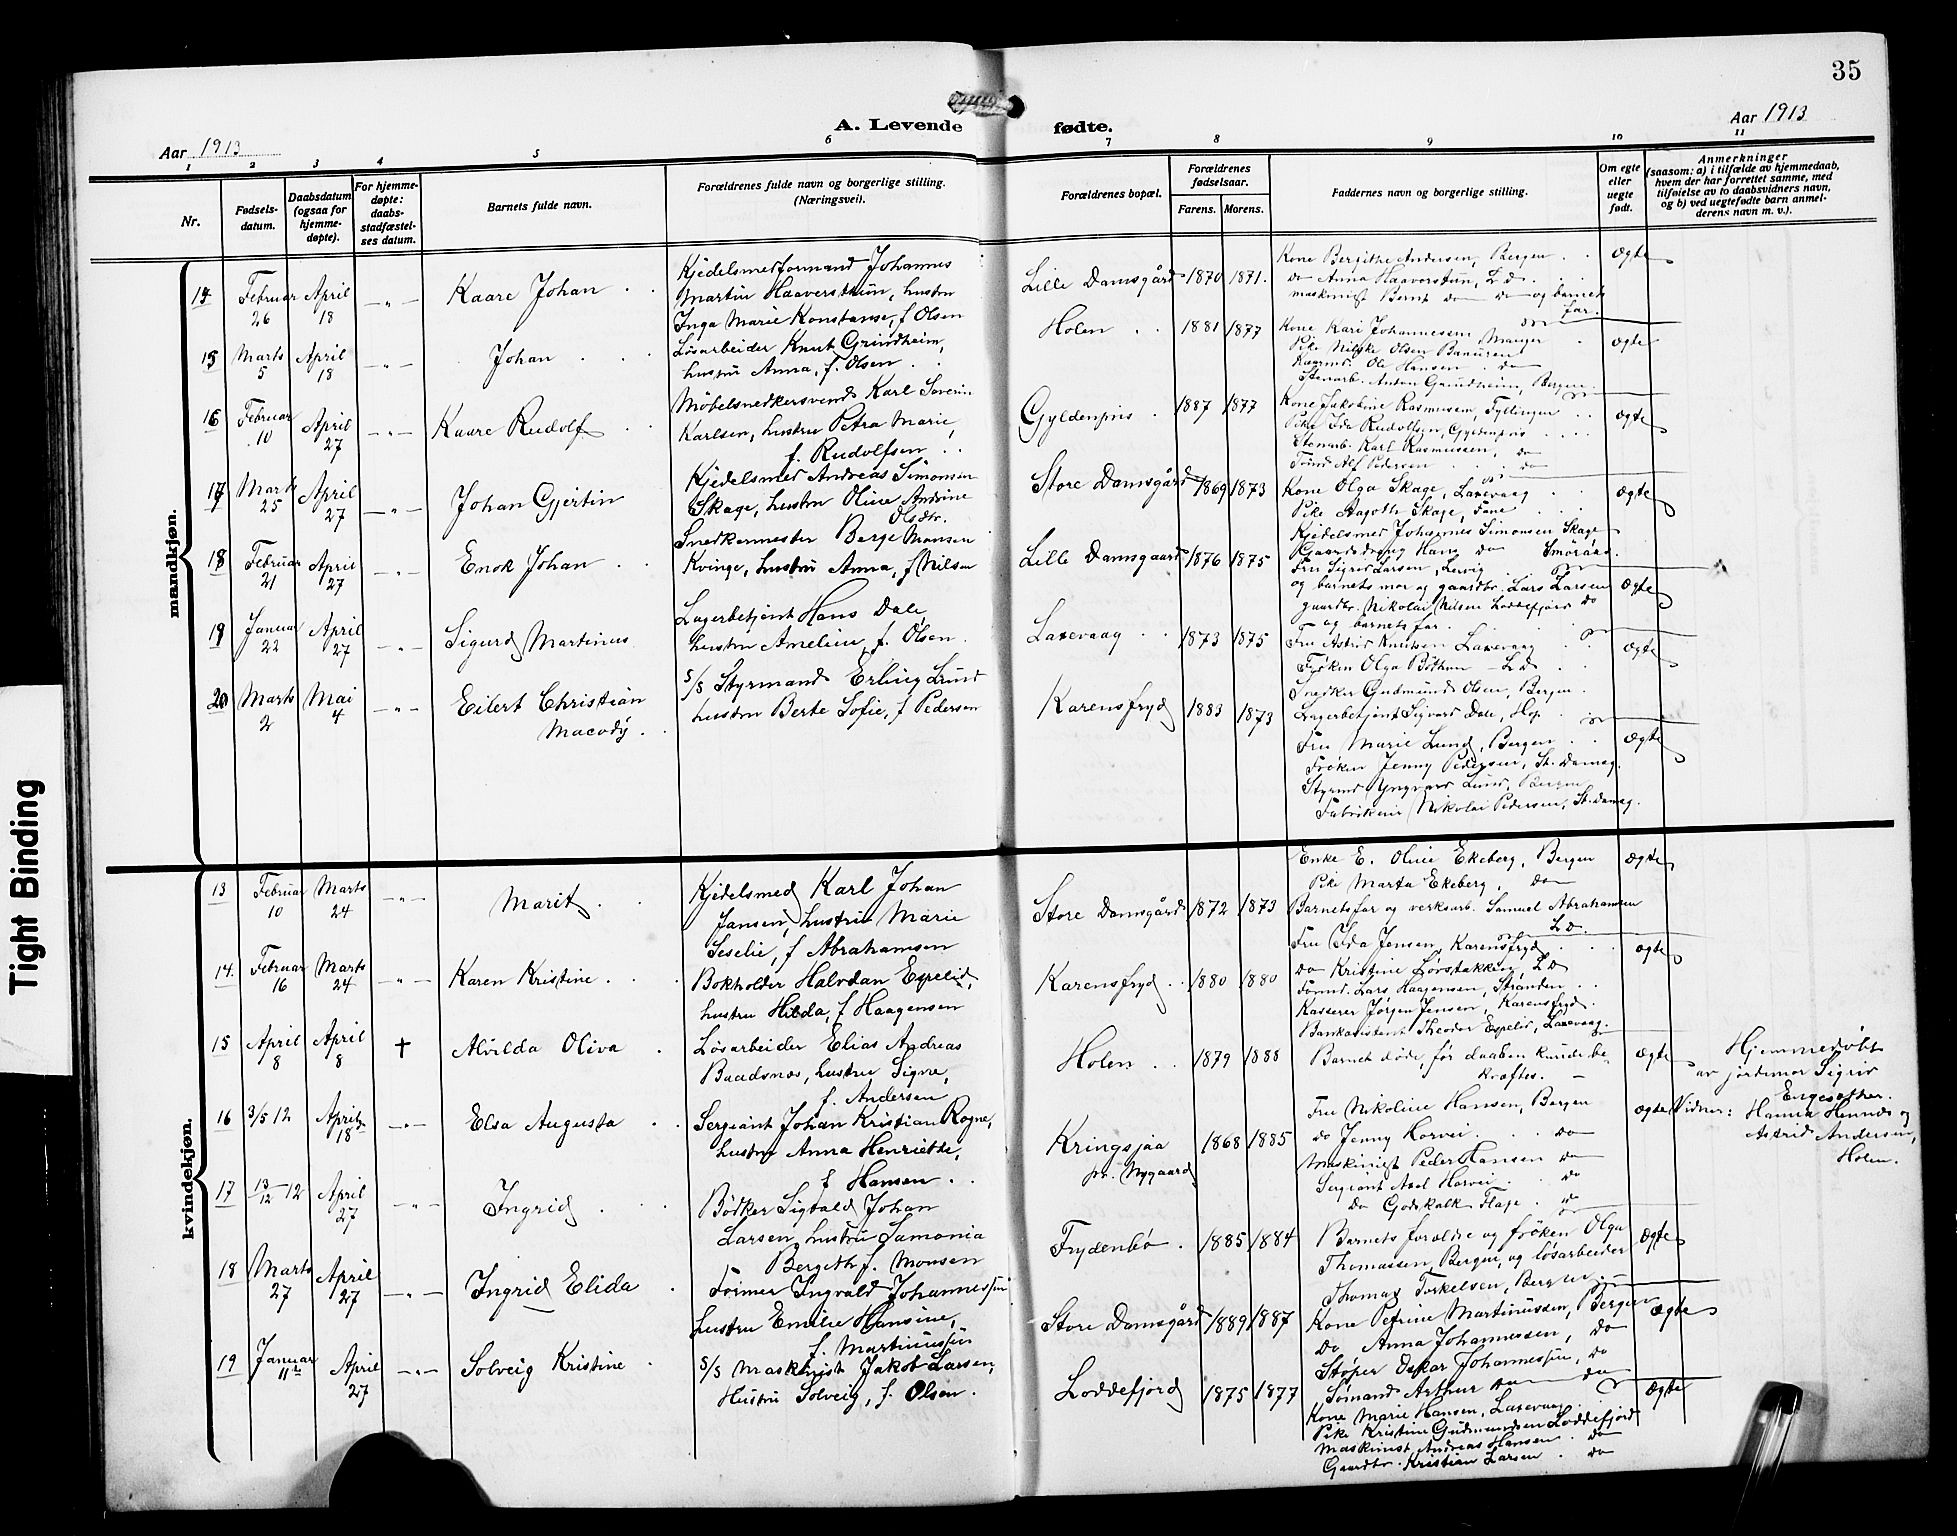 35
A. Levende fødte.
Aar 1913
Aar 1913
1 2 3 4 5 6 7 8 9 10 11
Nr.
Fødsels-
datum.
Daabsdatum
(ogsaa for
hjemme-
døpte).
For hjemme-
døpte:
daabs-
stadfæstel-
ses datum.
Barnets fulde navn.
Forældrenes fulde navn og borgerlige stilling.
(Næringsvei).
Forældrenes bopæl.
Forældrenes
fødselsaar.
Farens. Morens.
Faddernes navn og borgerlige stilling.
Om egte
eller
uegte
født.
Anmerkninger
(saasom: a) i tilfælde av hjemmedaab,
hvem der har forrettet samme, med
tilføielse av to daabsvidners navn,
og b) ved uegtefødte barn anmel-
derens navn m. v.).
mandkjøn.
14 Februar 26 April 18 -"- Kaare Johan
Kjedelsmedformand Johannes
Martin Haaverstun, hustru
Inga Marie Konstanse, f Olsen
Lille Damsgård 1870 1871.
Kone Bergithe Andersen, Bergen
do Anna Haaverstun, L d.
maskinist Bernt do do og barnets
far.
ægte
15 Marts 5 April 18 -"- Johan
Løsarbeider Knut Grindheim,
hustru Anna, f. Olsen
Holen 1881 1877
Kone Kari Johannessen Manger
Pike Nilske Olsen
Ole Hansen do
Stenarb. Anton Grindheim, Bergen
ægte
16 Februar 10 April 27 -"- Kaare Rudolf
Møbelsnedkersvend Karl Severin
Karlsen, hustru Petra Marie,
f. Rudolfsen
Gyldenpris 1887 1877
Kone Jakobine Rasmussen, Fyllingen
Pike Ida Rudolfsen, Gyldenpris
Stenarb. Karl Rasmussen, do
Tømd Alf Pedersen do
ægte
17 Marts 25 April 27 -"- Johan Gjertin
Kjedelsmed Andreas Simonsen
Skage, hustru Oline Andrine
Olsdtr.
Store Damsgård 1869 1873
Kone Olga Skage, Laxevaag
Pike Aagothe Skage, Fane
Kjedelsmed Johannes Simonsen Skage
Gaardsdreng Hans do Smöraas.
ægte
18 Februar 21 April 27 -"- Enok Johan
Snedkermester Berge Monsen
Kvinge, hustru Anna, f Nilsen
Lille Damsgaard 1876 1875
Fru Sigrid Larsen, Lervig
og barnets mor og gaardbr. Lars Larsen
gaardbr. Nikolai Nilsen Loddefjord do
og barnets far.
ægte
19 Januar 22 April 27 -"- Sigurd Martinus
Lagerbetjent Hans Dale
hustru Ameline, f. Olsen
Laxevaag 1873 1875
Fru Astrid Knutsen Laxevaag
Frøken Olga Böthun - L d
Snedker Gudmund Olsen, Bergen.
Lagerbetjent Sigvard Dale, Hop
ægte
20 Marts 2 Mai 4 -"- Eilert Christian
Macody
S/S Styrmand Erling Lund
hustru Berte Sofie, f Pedersen
Karensfryd 1883 1873
Fru Marie Lund, Bergen
Frøken Jenny Pedersen, St. Damsg.
Styrmd Yngvard Lund, Bergen
Fabrikeier Nikolai Pedersen, St. Damsg.
ægte
kvindekjøn.
13 Februar 10 Marts 24 -"- Marit
Kjedelsmed Karl Johan
Jansen, hustru Marie
Seselie, f Abrahamsen
Store Damsgård 1872 1873
Enke E. Oline Ekeberg, Bergen
Pike Marta Ekeberg, do
Barnets far og verksarb. Samuel Abrahamsen
L d.
ægte
14. Februar 16 Marts 24 -"- Karen Kristine
Bokholder Halvdan Espelid,
hustru Hilda, f Haagensen
Karensfryd 1880 1880
Fru Ida Jensen, Karensfryd
do Kristine Lövstakken, L d
Tømd. Lars Haagensen, Stranden
Kasserer Jørgen Jensen, Karensfryd
Bankasistent Theodor Espelid, Laxevaag
ægte
15 April 8 April 8 † Alvilda Oliva
Løsarbeider Elias Andreas
Baadsnes, hustru Signe,
f. Andersen
Holen 1879 1888
Barnet døde, før daaben kunde be-
kræftes. -
ægte
Hjemmedöbt
av jordmor Sigrid
Engesæther.
Vidner: Hanna Hennes og
Astrid Andersen,
Holen.
16 3/5 12 April 18 -"- Elsa Augusta
Sergeant Johan Kristian Rogne,
hustru Anna Henriette,
f Hansen
Kringsjaa
pr. Nygaard
1868 1885
Fru Nikoline Hansen, Bergen
do Jenny Horvei do
Maskinist Peder Hansen do
Sergeant Axel Horvei do
Do Godskalk Flage do
ægte
17 13/12 12 April 27 -"- Ingrid
Bödker Sigvald Johan
Larsen, hustru Lamonia
Bergethe f. Monsen
Frydenbö 1885 1884
Barnets foreldre og frøken Olga
Thomassen, Bergen, og løsarbeider
Thomas Torkelsen, Bergen. -
ægte
18 Marts 27 April 27 -"- Ingrid Elida
Former Ingvald Johannessen
hustru Emilie Hansine,
f. Martinussen
Store Damsgård 1889 1887
Kone Petrine Martinussen, Bergen
Do Anna Johannessen, do
Støper Oskar Johannessen, do
Sømand Arthur do do
ægte
19 Januar 11te April 27 -"- Solveig Kristine
S/S Maskinist Jakob Larsen,
Hustru Solveig, f. Olson.
Loddefjord 1875 1877
Kone Marie Hansen, Laxevaag
Pike Kristine Gudmundsen Loddefjord
Maskinist Andreas Hansen do
Gaardbr. Kristian Larsen do
ægte
Tight Binding